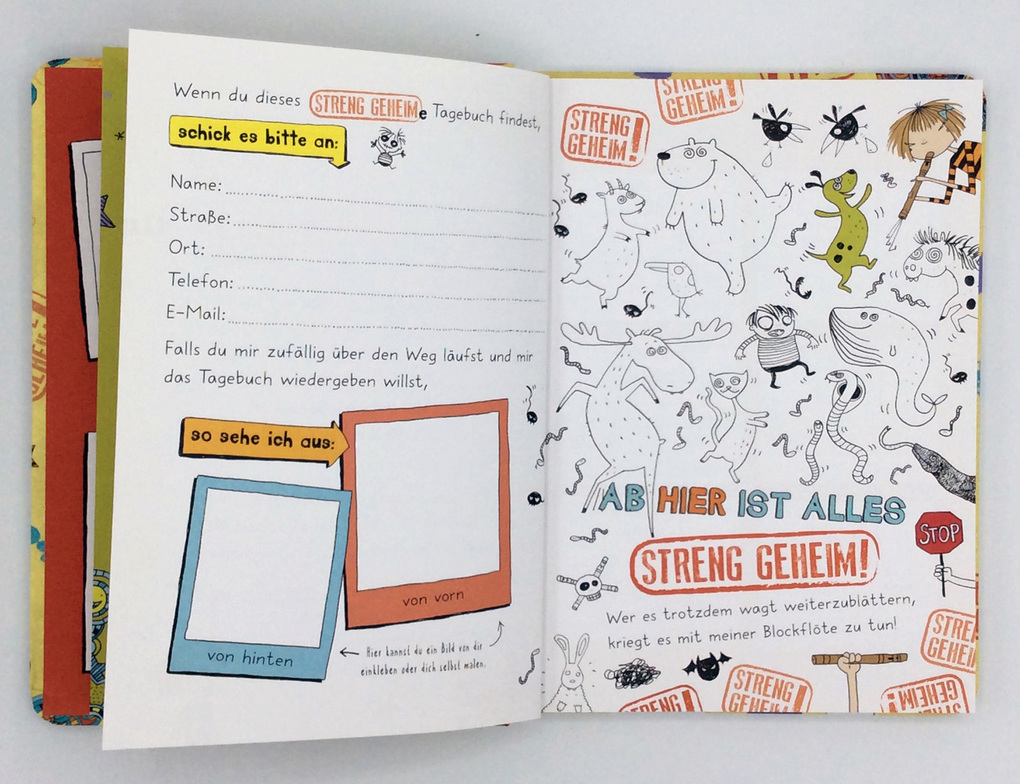 Wenn du dieses STRENG GEHEIMe Tagebuch findest,
schick es bitte an:
Name:
Straße:
Ort:
Telefon:
E-Mail:
Falls du mir zufällig über den Weg läufst und mir
das Tagebuch wiedergeben willst,
so sehe ich aus:
von vorn
von hinten
Hier kannst du ein Bild von dir
einkleben oder dich selbst malen.
STRENG
GEHEIM!
STRENG
GEHEIM!
AB HIER IST ALLES
STRENG GEHEIM!
STOP
Wer es trotzdem wagt weiterzublättern,
kriegt es mit meiner Blockflöte zu tun!
STRENG
GEHEIM
STRENG
GEHEIM!
STRENG!
GEHEIM!